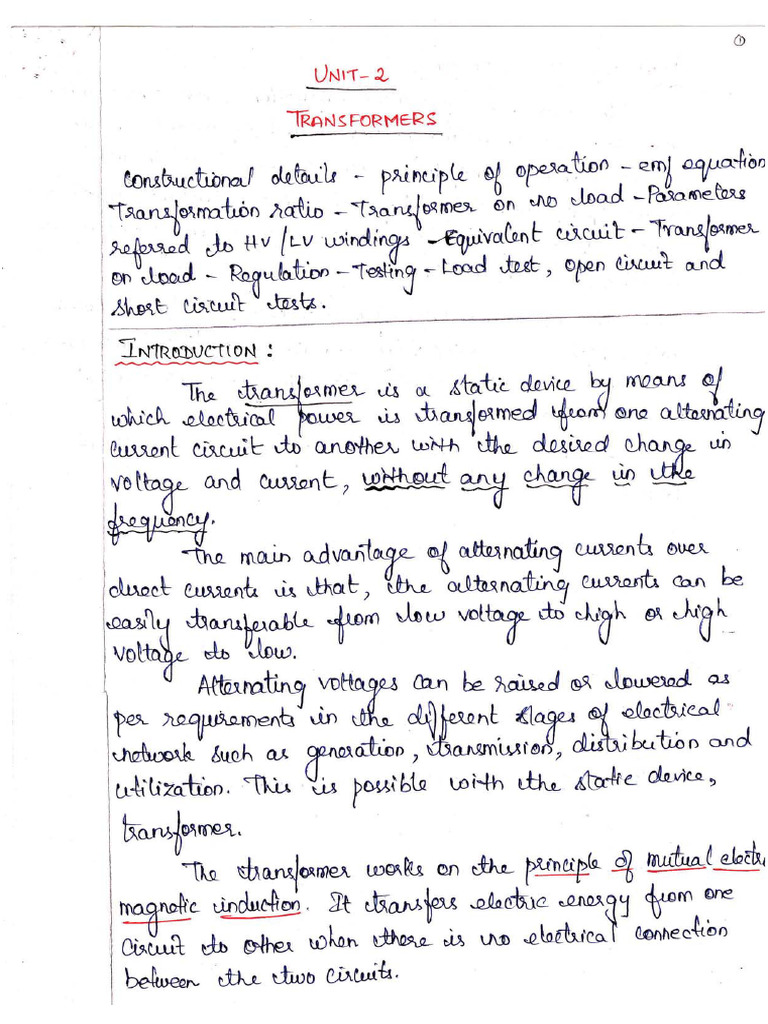 ①
UNIT-2
TRANSFORMERS
Constructional details - principle of operation - emf equation
Transformation ratio - Transformer on no load - Parameters
referred to HV/LV windings - Equivalent circuit - Transformer
on load - Regulation - Testing - Load test, open circuit and
short circuit tests.
INTRODUCTION:
The transformer is a static device by means of
which electrical power is transformed from one alternating
current circuit to another with the desired change in
voltage and current, without any change in the
frequency.
The main advantage of alternating currents over
direct currents is that, the alternating currents can be
easily transferable from low voltage to high or high
voltage to low.
Alternating voltages can be raised or lowered as
per requirements in the different stages of electrical
network such as generation, transmission, distribution and
utilization. This is possible with the static device,
transformer.
The transformer works on the principle of mutual electr
magnetic induction. It transfers electric energy from one
circuit to other when there is no electrical connection
between the two circuits.